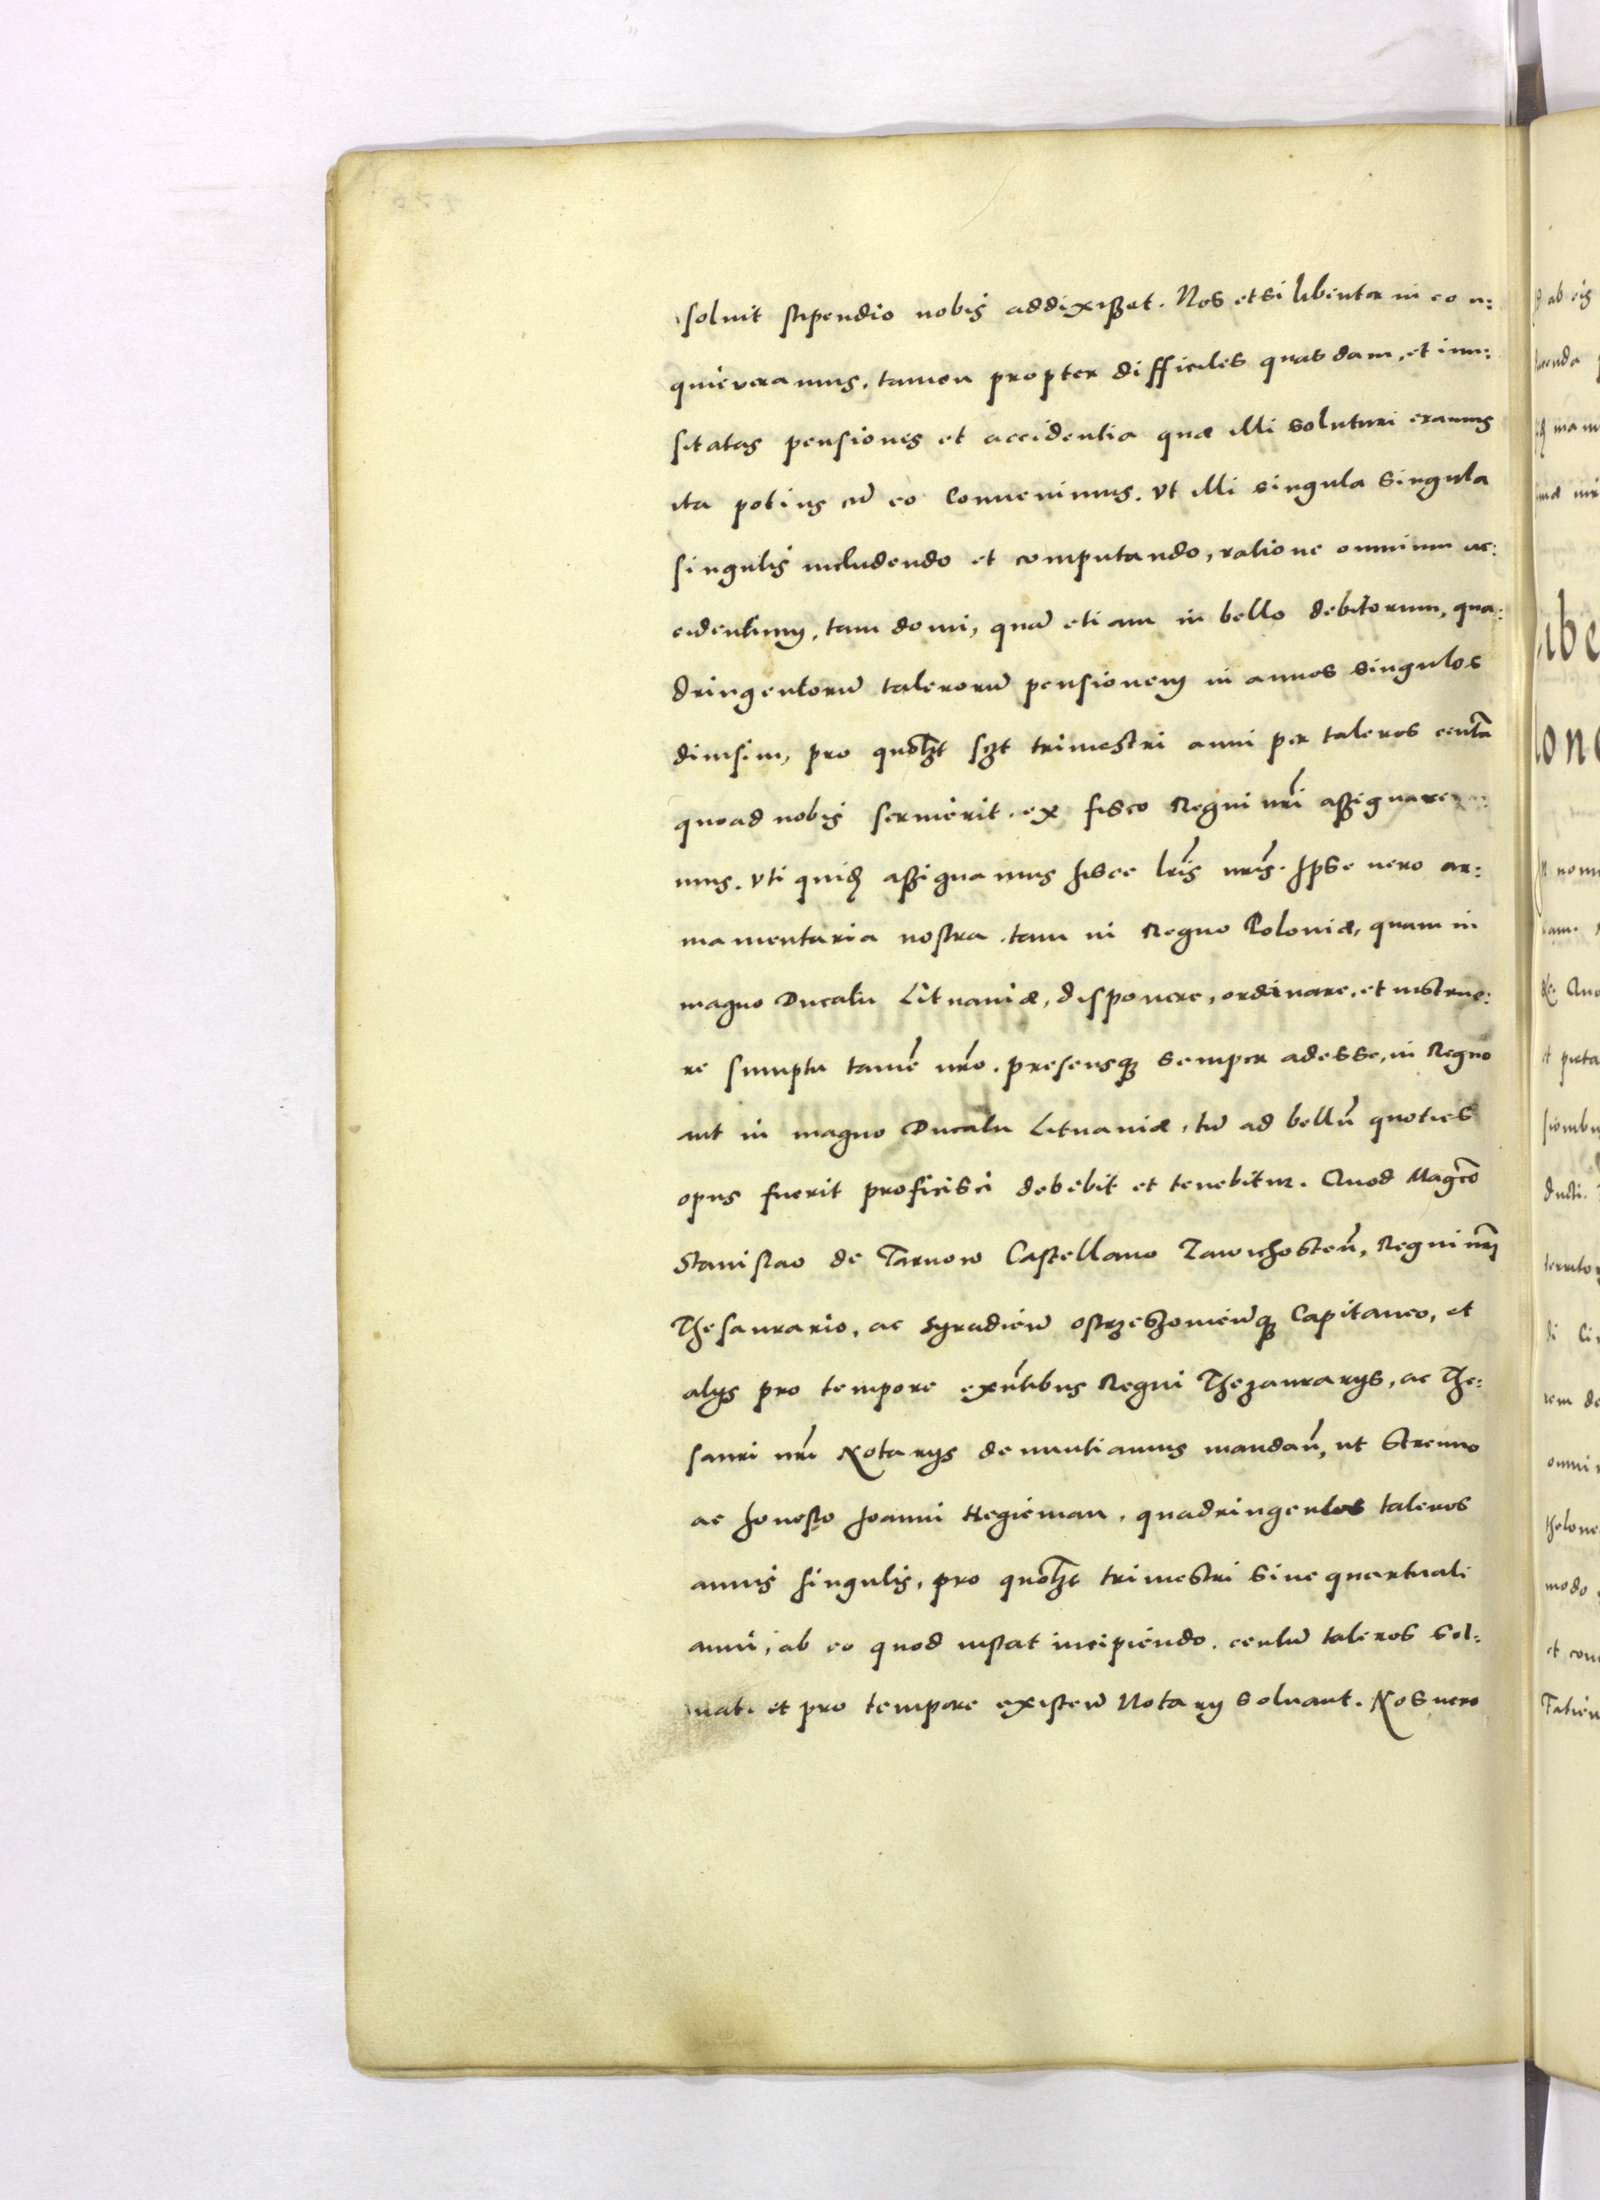 soluit stipendio nobis addixisset. Nos etsi libenter in eo a:
quieveramus, tamen propter difficiles quasdam, et inu:
sitatas pensiones et accidentia quae illi soluturi eramus
ita potius cū eo Conuenimus. Vt illi singula singula
singulis includendo et computando, ratione omnium ac:
cidentium, tam domi, quā etiam in bello debitorum, qua:
dringentorū talerorū pensionem in annos singulos
diuisim, pro quolz szt trimestri anni per taleros centū
quoad nobis seruierit. ex fisco Regni nri assignare
mus. Vti quidē assignamus hisce lris nris. Ipse uero ar:
mamentaria nostra tam in Regno Poloniæ, quam in
magno Ducatu Lituaniæ, disponere, ordinare, et instrue:
re sumptu tamē nro. presensq₃ semper adesse, in Regno
aut in magno Ducatu Lituaniæ, tū ad bellū quoties
opus fuerit proficisci debebit et tenebitur. Quod Magco
Stanislao de Tarnow Castellano Zawichosteñ, Regni nri
Thesaurario, ac Syradieñ ostrzeszouieñq₃ Capitaneo, et
alijs pro tempore exñtibus Regni Thezaurarijs, ac The:
sauri nri Notarijs denuntiamus mandañ, ut Strenuo
ac honesto Joanni Hegieman, quadringentos taleros
annis singulis, pro quolzt trimestri siue quartuali
anni, ab eo quod instat incipiendo, centū taleros sol:
uat. et pro tempore existeñ Notarij soluant. Nos uero
ab eis